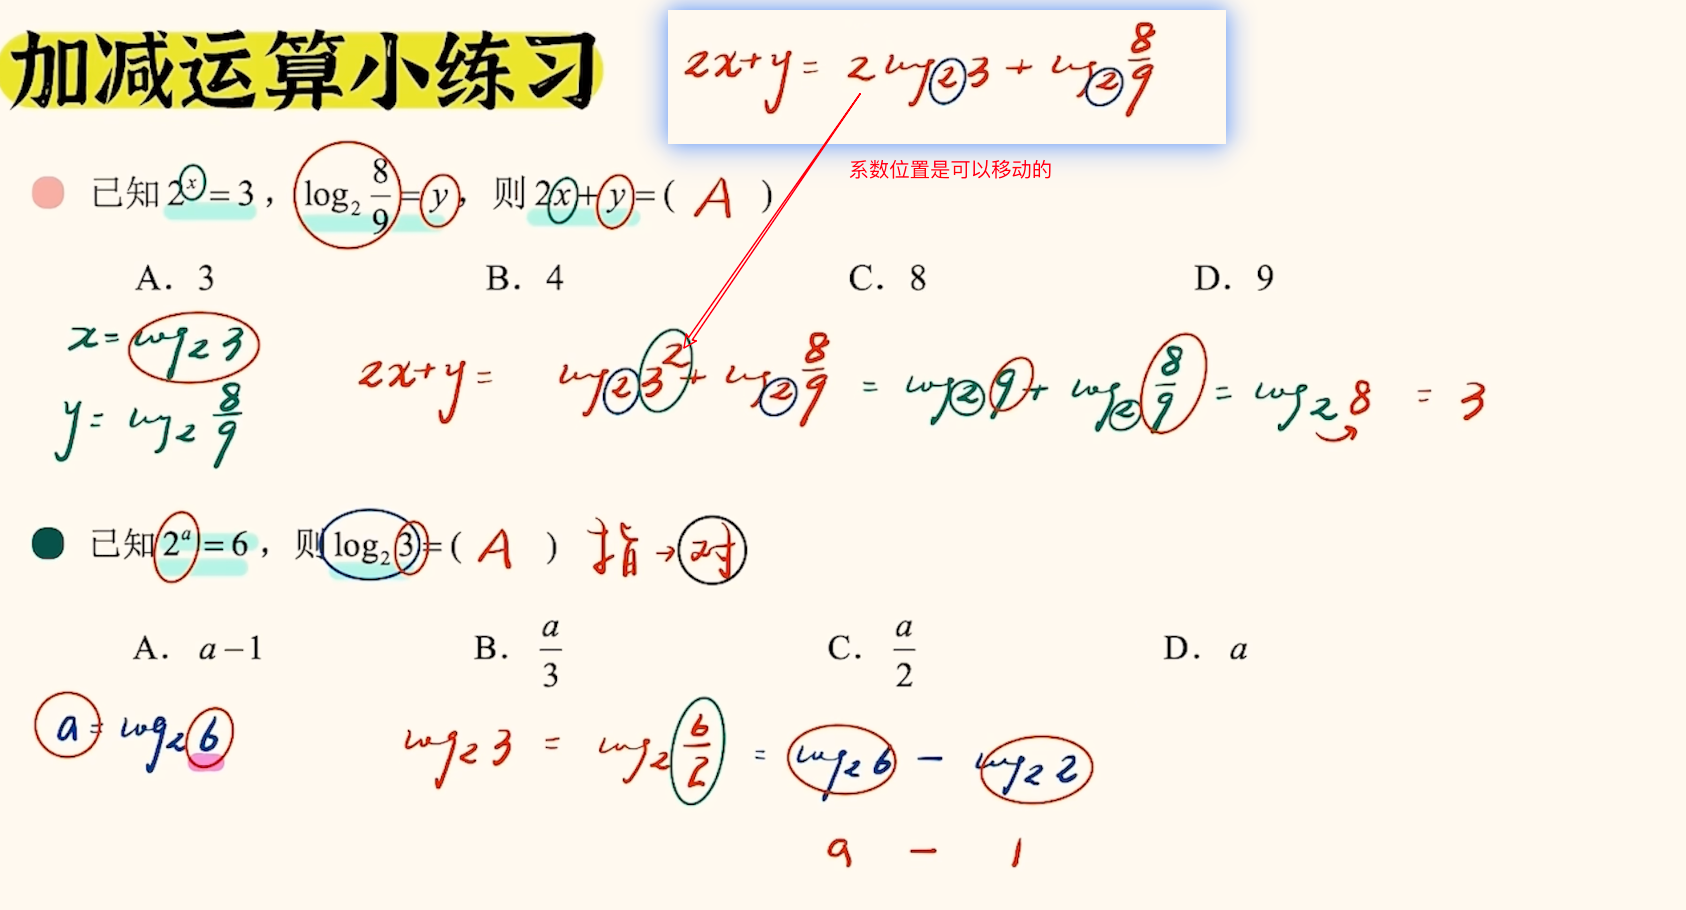 加减运算小练习
2x+y= 2log₂3 + log₂ 8/9
系数位置是可以移动的
已知 2ˣ=3，log₂ 8/9=y，则 2x+y=( A )
A. 3 B. 4 C. 8 D. 9
x= log₂3
y= log₂ 8/9
2x+y= log₂3²+ log₂ 8/9 = log₂9+ log₂ 8/9 = log₂8 = 3
已知 2ᵃ=6，则 log₂3=( A ) 指→对
A. a−1 B. a/3 C. a/2 D. a
a= log₂6
log₂3 = log₂ 6/2 = log₂6 − log₂2
a − 1